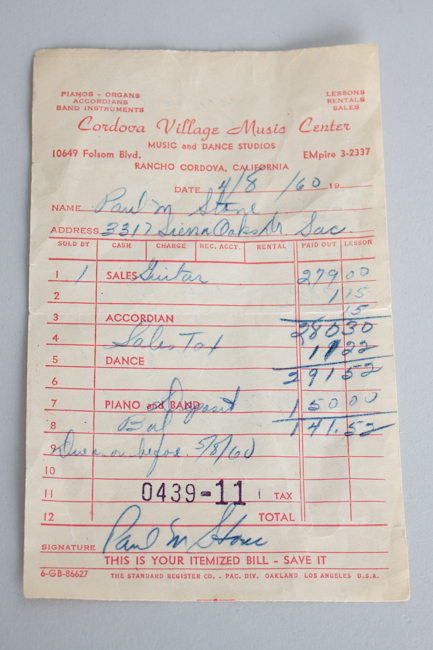 PIANOS - ORGANS
ACCORDIANS
BAND INSTRUMENTS
LESSONS
RENTALS
SALES
Cordova Village Music Center
MUSIC and DANCE STUDIOS
10649 Folsom Blvd.
EMpire 3-2337
RANCHO CORDOVA, CALIFORNIA
DATE 4/8/60 19
NAME Paul M Stone
ADDRESS 3317 Sierra Oaks Dr Sac.
SOLD BY CASH CHARGE REC. ACCT. RENTAL PAID OUT LESSON
1 1 SALES Guitar 279 00
2 1 15
3 ACCORDIAN 15
4 Sales Tax 280 30
5 DANCE 11 22
6 291 52
7 PIANO and BAND Deposit 150 00
8 Bal 141.52
9 Due on or before 5/8/60
10
11 0439-11 TAX
12 TOTAL
SIGNATURE Paul M Stone
THIS IS YOUR ITEMIZED BILL - SAVE IT
6-GB-86627 THE STANDARD REGISTER CO. - PAC. DIV. OAKLAND LOS ANGELES U.S.A.